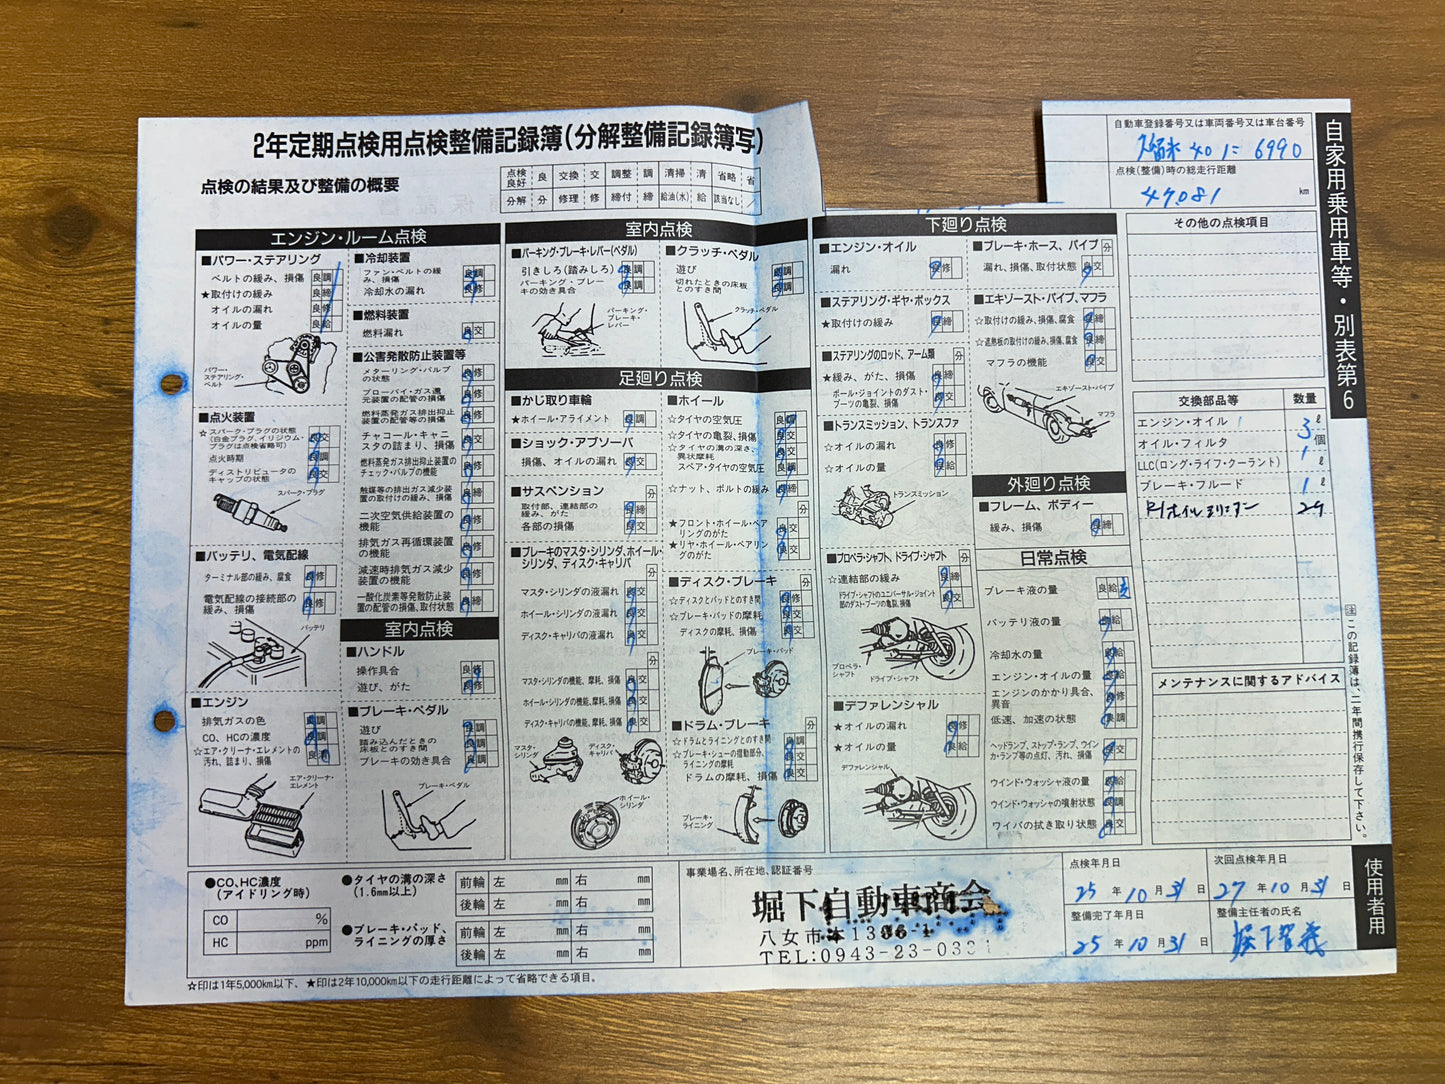 2年定期点検用点検整備記録簿(分解整備記録簿写)
点検の結果及び整備の概要
点検良好 良 交換 交 調整 調 清掃 清 省略 省
分解 分 修理 修 締付 締 給油(水) 給 該当なし ／
自動車登録番号又は車両番号又は車台番号
久留米 401 に 6990
点検(整備)時の総走行距離
47081 km
自家用乗用車等・別表第6
エンジン・ルーム点検
■パワー・ステアリング
ベルトの緩み、損傷 良 調
★取付けの緩み 良 締
オイルの漏れ 良 修
オイルの量 良 給
パワー・ステアリング・ベルト
■点火装置
☆スパーク・プラグの状態 良 交
(白金プラグ、イリジウム・プラグは点検省略可)
点火時期 良 調
ディストリビュータのキャップの状態 良 交
スパーク・プラグ
■バッテリ、電気配線
ターミナル部の緩み、腐食 良 修
電気配線の接続部の緩み、損傷 良 修
バッテリ
■エンジン
排気ガスの色 良 調
CO、HCの濃度 良 調
☆エア・クリーナ・エレメントの汚れ、詰まり、損傷 良
エア・クリーナ・エレメント
■冷却装置
ファン・ベルトの緩み、損傷 良 調
冷却水の漏れ 良 修
■燃料装置
燃料漏れ 良 交
■公害発散防止装置等
メターリング・バルブの状態 良 修
ブローバイ・ガス還元装置の配管の損傷 良 修
燃料蒸発ガス排出抑止装置の配管等の損傷 良 修
チャコール・キャニスタの詰まり、損傷 良 修
燃料蒸発ガス排出抑止装置のチェック・バルブの機能 良 修
触媒等の排出ガス減少装置の取付けの緩み、損傷 良 締
二次空気供給装置の機能 良 修
排気ガス再循環装置の機能 良 修
減速時排気ガス減少装置の機能 良 修
一酸化炭素等発散防止装置の配管の損傷、取付状態 良 締
室内点検
■ハンドル
操作具合 良 修
遊び、がた 良 修
■ブレーキ・ペダル
遊び 良 調
踏み込んだときの床板とのすき間 良 調
ブレーキの効き具合 良 調
ブレーキ・ペダル
室内点検
■パーキング・ブレーキ・レバー(ペダル)
引きしろ(踏みしろ) 良 調
パーキング・ブレーキの効き具合 良 調
パーキング・ブレーキ・レバー
■クラッチ・ペダル
遊び 良 調
切れたときの床板とのすき間 良 調
クラッチ・ペダル
足廻り点検
■かじ取り車輪
★ホイール・アライメント 良 調
■ショック・アブソーバ
損傷、オイルの漏れ 良 交
■サスペンション 分
取付部、連結部の緩み、がた 良 締
各部の損傷 良 交
■ブレーキのマスタ・シリンダ、ホイール・シリンダ、ディスク・キャリパ 分
マスタ・シリンダの液漏れ 良 交
ホイール・シリンダの液漏れ 良 交
ディスク・キャリパの液漏れ 良 交
分
マスタ・シリンダの機能、摩耗、損傷 良 交
ホイール・シリンダの機能、摩耗、損傷 良 交
ディスク・キャリパの機能、摩耗、損傷 良 交
マスタ・シリンダ
ディスク・キャリパ
ホイール・シリンダ
■ホイール
☆タイヤの空気圧 良
☆タイヤの亀裂、損傷 良 交
☆タイヤの溝の深さ、異状摩耗 良 交
スペア・タイヤの空気圧 良 調
☆ナット、ボルトの緩み 良 締
分
★フロント・ホイール・ベアリングのがた 良 交
★リヤ・ホイール・ベアリングのがた 良 交
■ディスク・ブレーキ 分
☆ディスクとパッドとのすき間 良 修
☆ブレーキ・パッドの摩耗 良 交
ディスクの摩耗、損傷 良 交
ブレーキ・パッド
■ドラム・ブレーキ 分
☆ドラムとライニングとのすき間 良 調
☆ブレーキ・シューの摺動部分、ライニングの摩耗 良 交
ドラムの摩耗、損傷 良 交
ブレーキ・ライニング
下廻り点検
■エンジン・オイル
漏れ 良 修
■ステアリング・ギヤ・ボックス
★取付けの緩み 良 締
■ステアリングのロッド、アーム類 分
★緩み、がた、損傷 良 締
ボール・ジョイントのダスト・ブーツの亀裂、損傷 良 交
■トランスミッション、トランスファ
☆オイルの漏れ 良 修
☆オイルの量 良 給
トランスミッション
■プロペラ・シャフト、ドライブ・シャフト 分
☆連結部の緩み 良 締
ドライブ・シャフトのユニバーサル・ジョイント部のダスト・ブーツの亀裂、損傷 良 交
プロペラ・シャフト
ドライブ・シャフト
■デファレンシャル
★オイルの漏れ 良 修
★オイルの量 良 給
デファレンシャル
■ブレーキ・ホース、パイプ 分
漏れ、損傷、取付状態 良 交
■エキゾースト・パイプ、マフラ
☆取付けの緩み、損傷、腐食 良 締
☆遮熱板の取付けの緩み、損傷、腐食 良 締
マフラの機能 良 交
エキゾースト・パイプ
マフラ
外廻り点検
■フレーム、ボディー
緩み、損傷 良 締
日常点検
ブレーキ液の量 良 給
バッテリ液の量 良 給
冷却水の量 良 給
エンジン・オイルの量 良 給
エンジンのかかり具合、異音 良 修
低速、加速の状態 良 調
ヘッドランプ、ストップ・ランプ、ウインカ・ランプ等の点灯、汚れ、損傷 良 交
ウインド・ウォッシャ液の量 良 給
ウインド・ウォッシャの噴射状態 良 調
ワイパの拭き取り状態 良 交
その他の点検項目
交換部品等 数量
エンジン・オイル 3 ℓ
オイル・フィルタ 1 個
LLC(ロング・ライフ・クーラント) ℓ
ブレーキ・フルード 1 ℓ
メンテナンスに関するアドバイス
注 この記録簿は、二年間携行保存して下さい。
●CO、HC濃度(アイドリング時)
CO %
HC ppm
●タイヤの溝の深さ(1.6mm以上)
前輪 左 mm 右 mm
後輪 左 mm 右 mm
●ブレーキ・パッド、ライニングの厚さ
前輪 左 mm 右 mm
後輪 左 mm 右 mm
事業場名、所在地、認証番号
堀下自動車商会
八女市本1366-1
TEL:0943-23-03
点検年月日
25 年 10 月 31 日
次回点検年月日
27 年 10 月 31 日
整備完了年月日
25 年 10 月 31 日
整備主任者の氏名
使用者用
☆印は1年5,000km以下、★印は2年10,000km以下の走行距離によって省略できる項目。